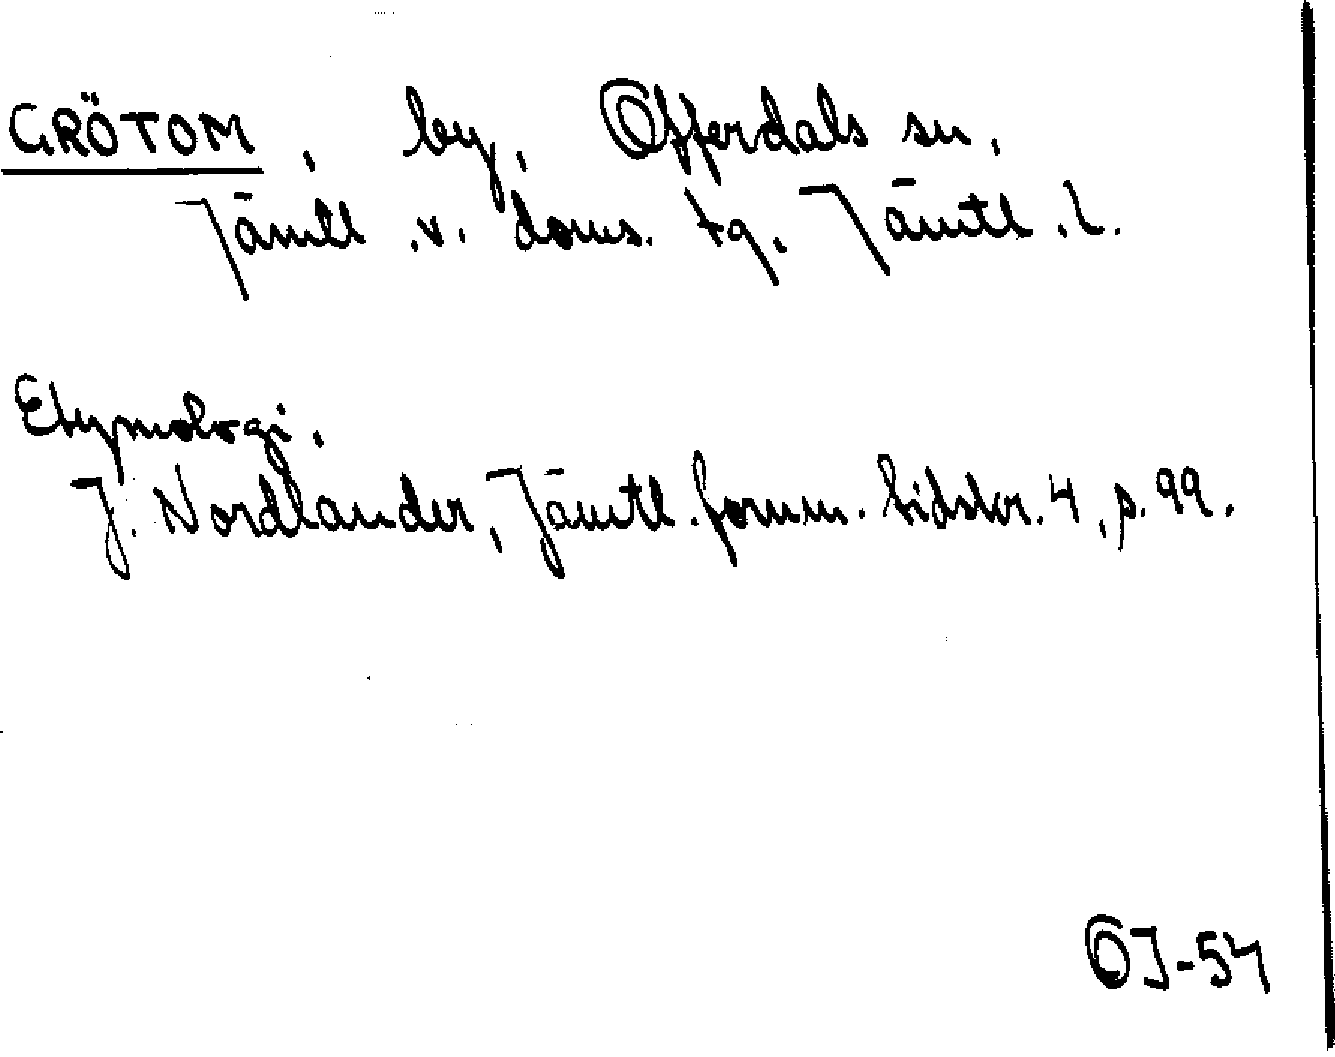 GRÖTOM, by, Offerdals sn,
Jämtl. v. doms. tg. Jämtl. l.
Etymologi.
J. Nordlander, Jämtl. fornm. tidskr. 4, p. 99.
OJ-54